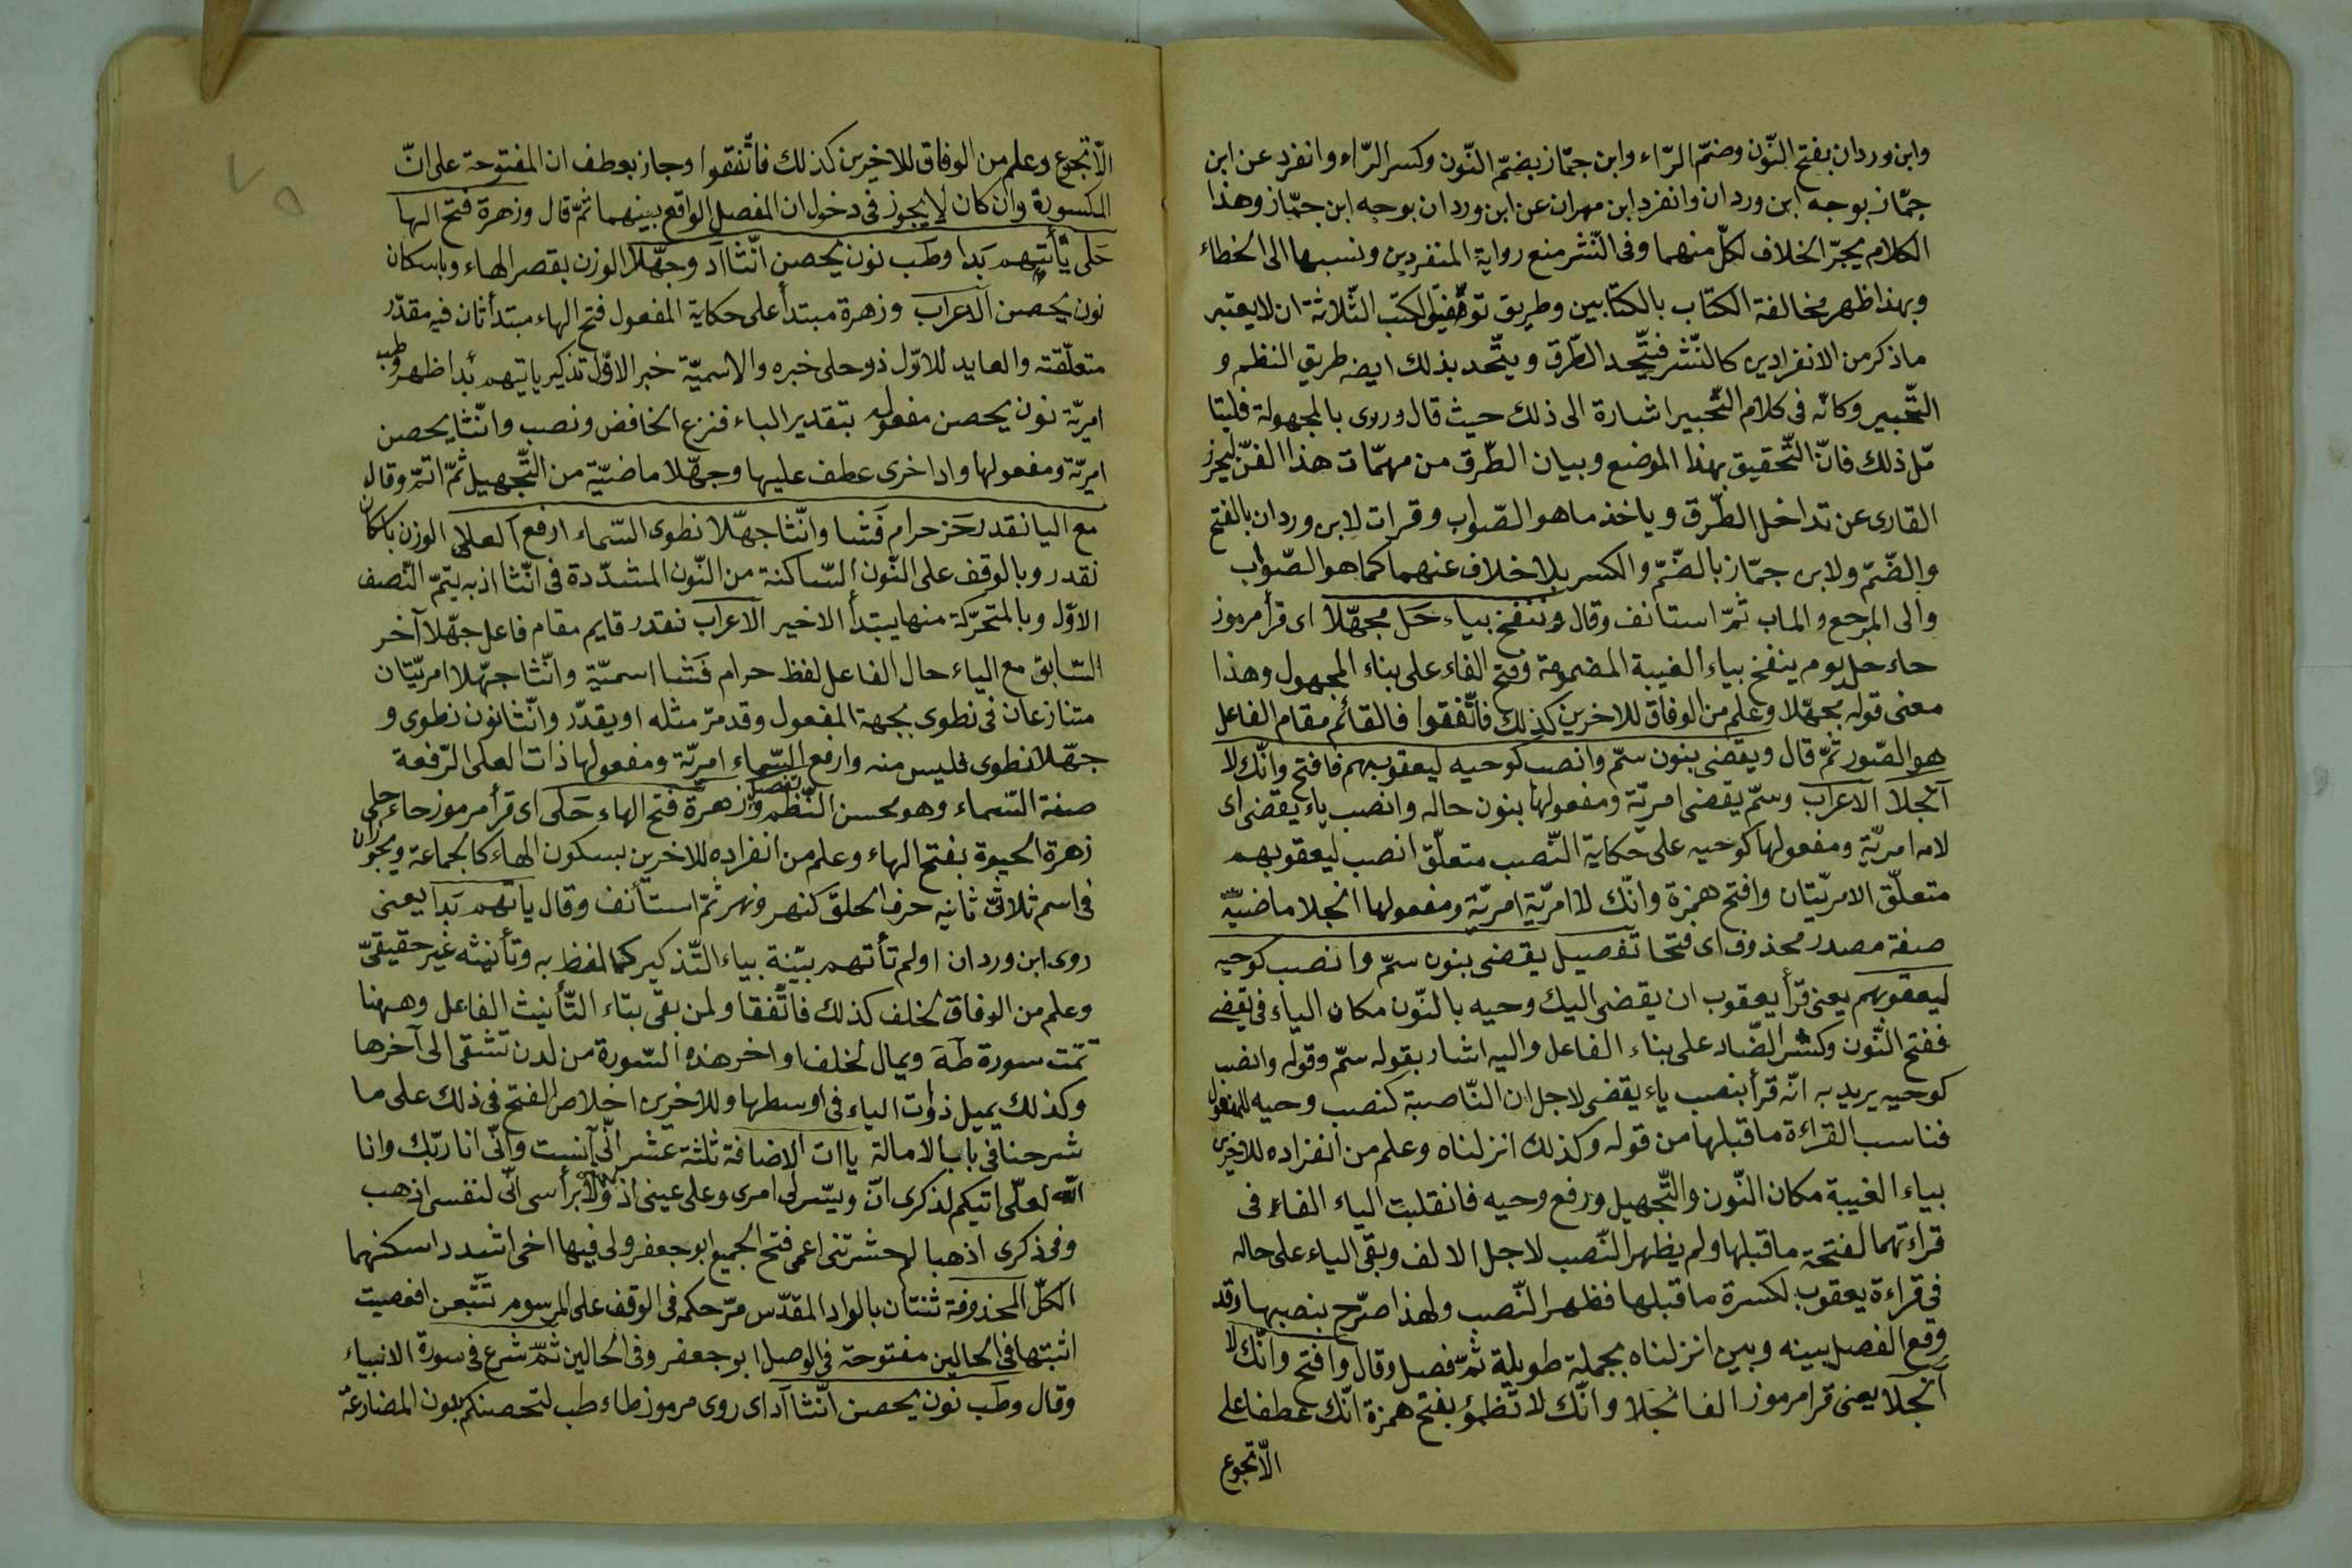 وابن وردان بفتح النّون وضمّ الرّاء وابن جمّاز بضمّ النّون وكسر الرّاء وانفرد عن ابن
جمّاز بوجه ابن وردان وانفرد ابن مهران عن ابن وردان بوجه ابن جمّاز وهذا
الكلام يجرّ الخلاف لكلّ منهما وفى النّشر منع رواية المنفردين ونسبها الى الخطاء
وبهذا ظهر مخالفة الكتاب بالكتابين وطريق توفيق الكتب الثّلاثة ان لا يعتبر
ما ذكر من الانفرادين كالنّشر فيتّحد الطّرق ويتّحد بذلك ايضه طريق النظم و
التّحبير وكانّه فى كلام التّحبير اشارة الى ذلك حيث قال وروى بالمجهولة فليتا
مّل ذلك فانّ التّحقيق بهذا الموضع وبيان الطّرق من مهمّات هذا الفنّ ليحرز
القارى عن تداخل الطّرق وياخذ ما هو الصّواب وقرات لابن وردان بالفتح
والضّمّ ولابن جمّاز بالضّمّ والكسر بلا خلاف عنهما كما هو الصّواب
والى المرجع والماب ثمّ استانف وقال وننفخ بياء حَل مجهّلا اى قرأ مرموز
حاء حل يوم ينفخ بياء الغيبة المضمومة وفتح الفاء على بناء المجهول وهذا
معنى قوله مجهّلا وعلم من الوفاق للاخرين كذلك فاتّفقوا فالقائم مقام الفاعل
هو الصّور ثمّ قال ويقضى بنون سمّ وانصب كوحيه ليعقوبهم فافتح وانّك لا
آنجلا الاعراب وسمّ يقضى امريّة ومفعولها بنون حاله وانصب ياء يقضى اى
لامه امريّة ومفعولها كوحيه على حكاية النّصب متعلّق انصب ليعقوبهم
متعلّق الامريّتان وافتح همزة وانّك لا امريّة امريّة ومفعولها انجلا ماضيّة
صفة مصدر محذوف اى فتحا تفصيل يقضى بنون سمّ وانصب كوحيه
ليعقوبهم يعنى قرأ يعقوب ان يقضى اليك وحيه بالنّون مكان الياء فى يقضى
ففتح النّون وكسر الضّاد على بناء الفاعل واليه اشار بقوله سمّ وقوله وانصب
كوحيه يريد به انّه قرأ بنصب ياء يقضى لاجل ان النّاصبة كنصب وحيه للمفعول
فناسب القراءة ما قبلها من قوله وكذلك انزلناه وعلم من انفراده للاخرين
بياء الغيبة مكان النّون والتّجهيل ورفع وحيه فانقلبت الياء الفاء فى
قراءتهما لفتحة ما قبلها ولم يظهر النّصب لاجل الالف وبقى الياء على حاله
فى قراءة يعقوب لكسرة ما قبلها فظهر النّصب ولهذا صرّح بنصبها وقد
وقع الفصل بينه وبين انزلناه بجملة طويلة ثمّ فصل وقال وافتح وانّك لا
آنجلا يعنى قرا مرموز الف انجلا وانّك لا تظمؤ بفتح همزة انّك عطفا على
الّا تجوع
الّا تجوع وعلم من الوفاق للاخرين كذلك فاتّفقوا وجاز بعطف ان المفتوحة على انّ
المكسورة وان كان لا يجوز فى دخول ان المفصل الواقع بينهما ثمّ قال وزهرة فتح الها
حَلى يأتهم بَدا وطب نون يحصن انّثا آد وجهّلا الوزن بقصر الهاء وباسكان
نون يحصن الاعراب وزهرة مبتدأ على حكاية المفعول فتح الهاء مبتدأ ثان فيه مقدّر
متعلّقته والعايد للاوّل ذو حلى خبره والاسميّة خبر الاوّل تذكير ياتيهم بَدا ظهر وطب
امريّة نون يحصن مفعوله بتقدير الباء فنزع الخافض ونصب وانّثا يحصن
امريّة ومفعولها واد اخرى عطف عليها وجهّلا ماضيّة من التّجهيل ثمّ اتمّ وقال
مع اليا نقدر حَز حرام فَشا وانّثا جهّلا نطوى السّماء ارفع العلا الوزن باسكان
نقدر وبالوقف على النّون السّاكنة من النّون المشدّدة فى انّثا اذ به يتمّ النّصف
الاوّل وبالمتحرّكة منها يبتدأ الاخير الاعراب نقدر قايم مقام فاعل جهّلا آخر
السّابق مع الياء حال الفاعل لفظ حرام فَشا اسميّة وانّثا جهّلا امريّتان
متنازعان فى نطوى بجهة المفعول وقد مرّ مثله او يقدّر وانّثا نون نطوى و
جهّلا نطوى فليس منه وارفع السّماء امريّة ومفعولها ذات العلى الرّفعة
صفة السّماء وهو محسن النّظم تفصيل وزهرة فتح الهاء حَلى اى قرأ مرموز حاء حلى
زهرة الحيوة بفتح الهاء وعلم من انفراده للاخرين بسكون الهاء كالجماعة ويجوزان
فى اسم ثلاثىّ ثانيه حرف الحلق كنهر ونهر ثمّ استأنف وقال ياتهم بَدا يعنى
روى ابن وردان اولم تأتهم بيّنة بياء التّذكير كما لفظ به وتأنيثه غير حقيقىّ
وعلم من الوفاق لخلف كذلك فاتّفقا ولمن بقى بتاء التّأنيث الفاعل وههنا
تمّت سورة طه ويمال لخلف اواخر هذه السّورة من لدن تشقى الى آخرها
وكذلك يميل ذوات الياء فى اوسطها وللاخرين اخلاص الفتح فى ذلك على ما
شرحنا فى باب الامالة ياات الاضافة ثلثة عشر انّى آنست وانّى انا ربّك وانا
الله لعلّى اتيكم لذكرى انّ ويسّر لى امرى وعلى عينى اذ ولا برأسى انّى لنفسى اذهب
وفى ذكرى اذهبا لم حشرتنى اعمى فتح الجميع ابو جعفر ولى فيها اخى اشدد اسكنهما
الكلّ المحذوفة ثنتان بالواد المقدّس مرّ حكمه فى الوقف على المرسوم تتّبعن افعصيت
اثبتها فى الحالين مفتوحة فى الوصل ابو جعفر وفى الحالين ثمّ شرع فى سورة الانبياء
وقال وطب نون يحصن انّثا آد اى روى مرموز طاء طب لتحصنكم بنون المضارعة